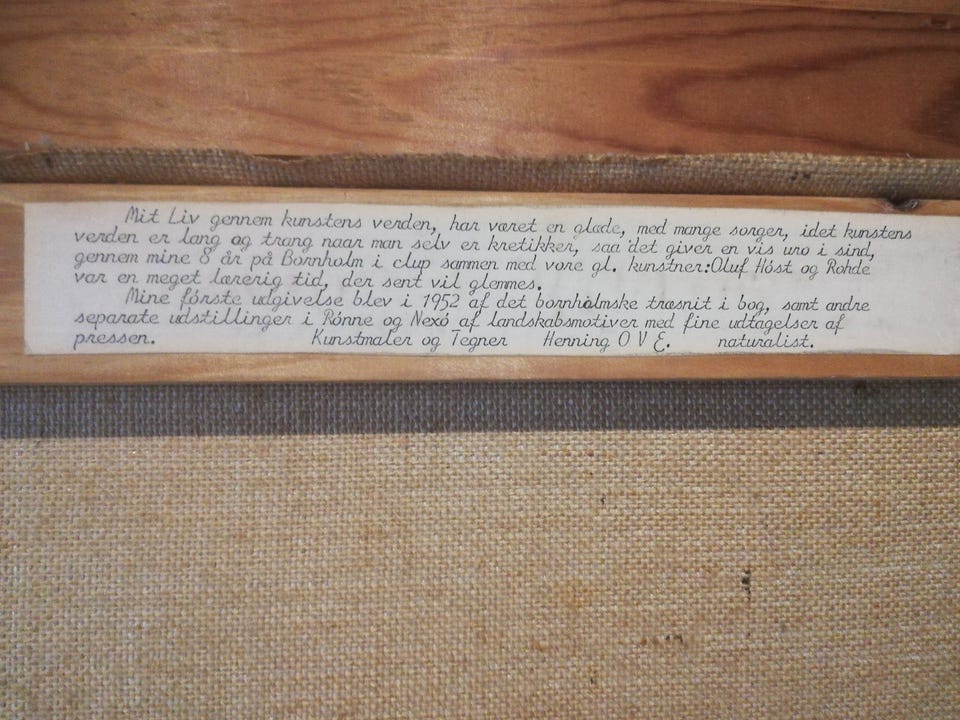 Mit Liv gennem kunstens verden, har været en glæde, med mange sorger, idet kunstens
verden er lang og trang naar man selv er kretikker, saa det giver en vis uro i sind,
gennem mine 8 år på Bornholm i clup sammen med vore gl. kunstner: Oluf Höst og Rohde
var en meget lærerig tid, der sent vil glemmes.
Mine förste udgivelse blev i 1952 af det bornholmske træsnit i bog, samt andre
separate udstillinger i Rónne og Nexó af landskabsmotiver med fine udtagelser af
pressen. Kunstmaler og Tegner Henning O V E. naturalist.